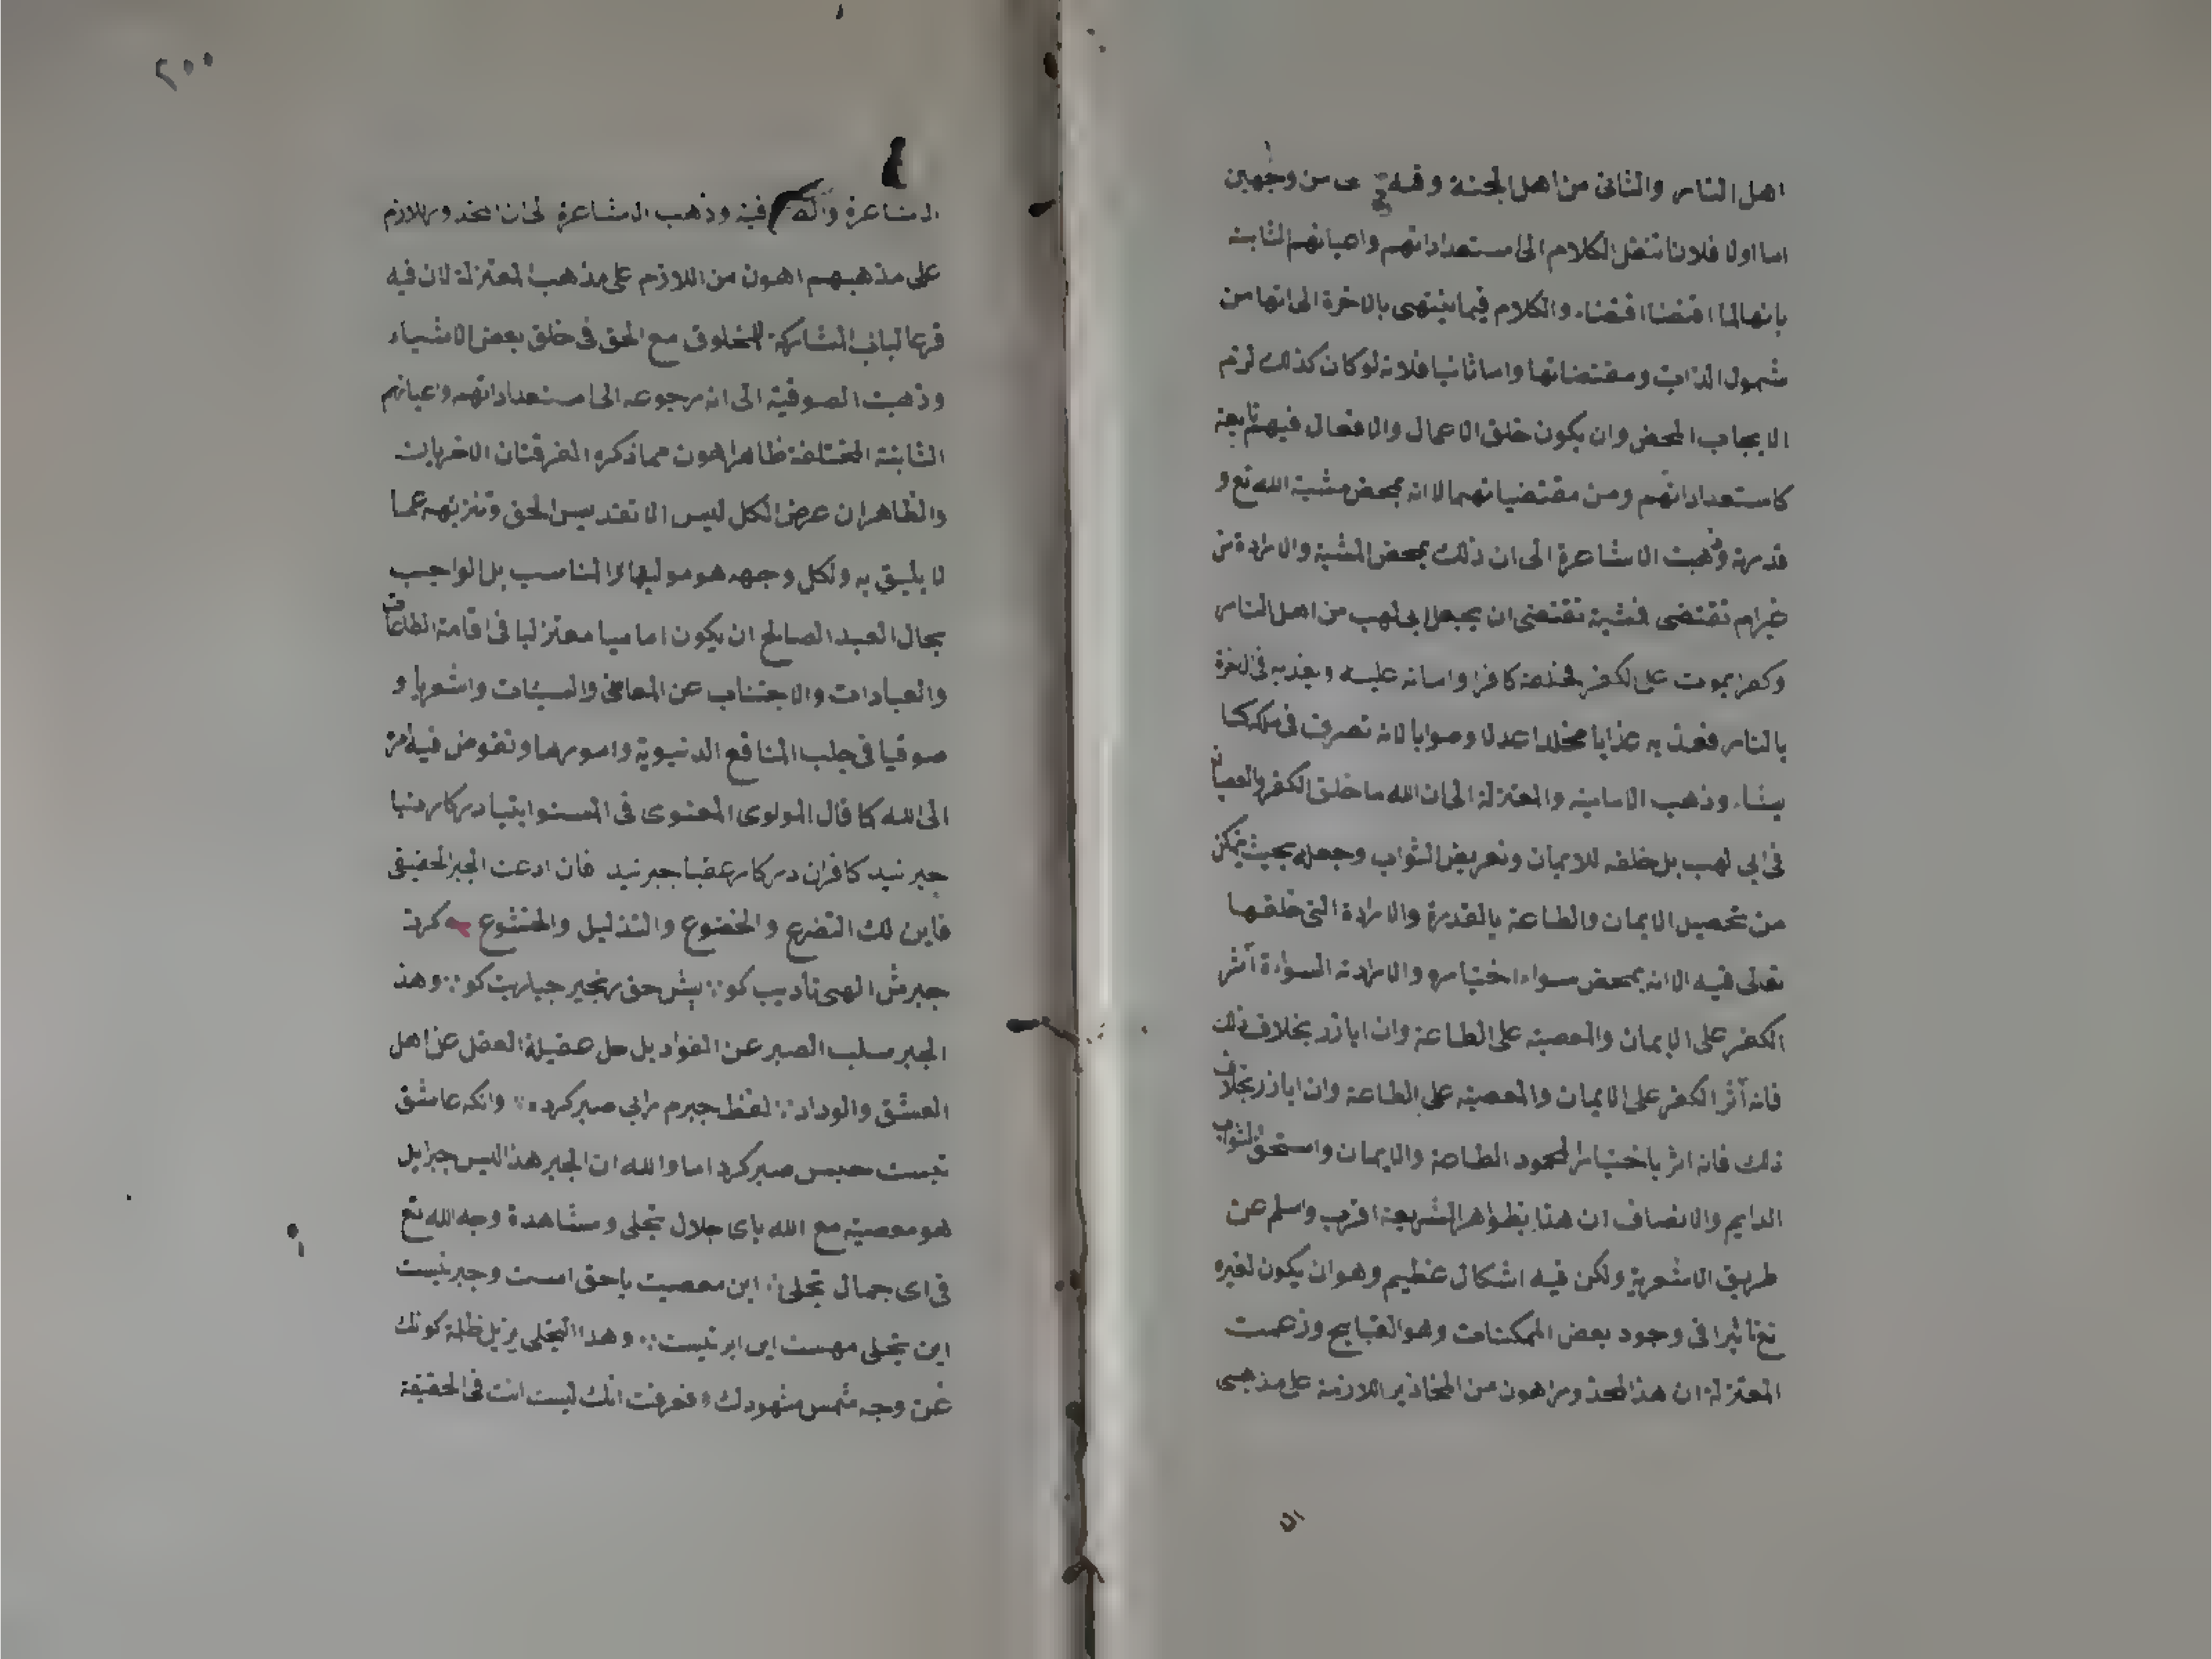 اهل النار والثانى من اهل الجنة وفيه من وجهين
اما اولا فلانا ننقل الكلام الى استعداداتهم واعيانهم الثابتة
بانها لما اقتضا اقتضاء والكلام فيما ينتهى بالاخرة الى انها من
شمول الذات ومقتضاتها واما ثانيا فلانه لو كان كذلك لزم
الايجاب المحض وان يكون خلق الاعمال والافعال فيهم تابعة
كاستعداداتهم ومن مقتضياتهما لا انه بمحض مشية الله تع و
قدرته وذهبت الاشاعرة الى ان ذلك بمحض المشية والارادة من
تقتضى فمشيته تقتضى ان يجعل ابى لهب من اهل النار
يموت على الكفر فخلقه كافرا واماته عليه ويعذبه فى الاخرة
بالنار فعذبه عذابا مخلدا عدلا وصوابا لانه تصرف فى ملكه كما
يشاء وذهب الامامية والمعتزلة الى ان الله ما خلق الكفر والعصيان
فى ابى لهب بل خلقه للايمان وتعريض الثواب وجعله بحيث يمكن
من تحصيل الايمان والطاعة بالقدرة والارادة التى خلقها
تعالى فيه الا انه بمحض سواء اختياره والارادة السواءة آثر
الكفر على الايمان والمعصية على الطاعة وان اباذر بخلاف ذلك
فانه آثر الكفر على الايمان والمعصية على الطاعة وان اباذر بخلاف
ذلك فانه اثر باختيار المحمود الطاعة والايمان واستحق الثواب
الدايم والانصاف ان هذا بظواهر الشريعة اقرب واسلم عن
طريق الاشعرية ولكن فيه اشكال عظيم وهو ان يكون لغيره
تع تاثيرا فى وجود بعض الممكنات وهو القبايح وزعمت
المعتزلة ان هذا المحذور اهون من المحاذير اللازمة على مذهبى
٢٠٠
الاشاعرة والصوفية وذهب الاشاعرة الى ان المحذور اللازم
على مذهبهم اهون من اللازم على مذهب المعتزلة لان فيه
قرعا لباب المشاركة للمخلوق مع الحق فى خلق بعض الاشياء
وذهبت الصوفية الى انه مرجوعه الى استعداداتهم واعيانهم
الثابتة المختلفة ظاهرا اهون مما ذكره الفرقتان الاخريان
والظاهر ان غرض الكل ليس الا تقديس الحق وتنزيهه عما
لا يليق به ولكل وجهه هو موليها والمناسب بل الواجب
بحال العبد الصالح ان يكون اماميا معتزليا فى اقامة الطاعات
والعبادات والاجتناب عن المعاصى والسيئات واشعريا و
صوفيا فى جلب المنافع الدنيوية وامورها وتفوض فيه امره
الى الله كما قال المولوى المعنوى فى المسنوا انبيا دركار دنيا
جبرنيد كافران دركار عقبا جبرنيد فان ادعت الجبر الحقيقى
فاين لك التضرع والخضوع والتذليل والخشوع كرد
جبرش الهى تاديب كو :: پيش حق زنجير جباريت كو :: وهذ
الجبر سلب الصبر عن الفواد بل حل عقيلة العقل عن اهل
العشق والوداد :: لفظ جبرم را بى صبر كرد :: وانكه عاشق
نيست حبس صبر كرد اما والله ان الجبر هذا ليس جبرا بل
هو معصية مع الله باى جلال تجلى ومشاهدة وجه الله تع
فى اى جمال تجلى :: اين معصيت باحق است وجبر نيست
اين تجلى مهست اين ابر نيست :: وهذا التجلى يزيل ظلمة كونك
عن وجه شمس شهودك فعرفت انك ليست انت فى الحقيقة